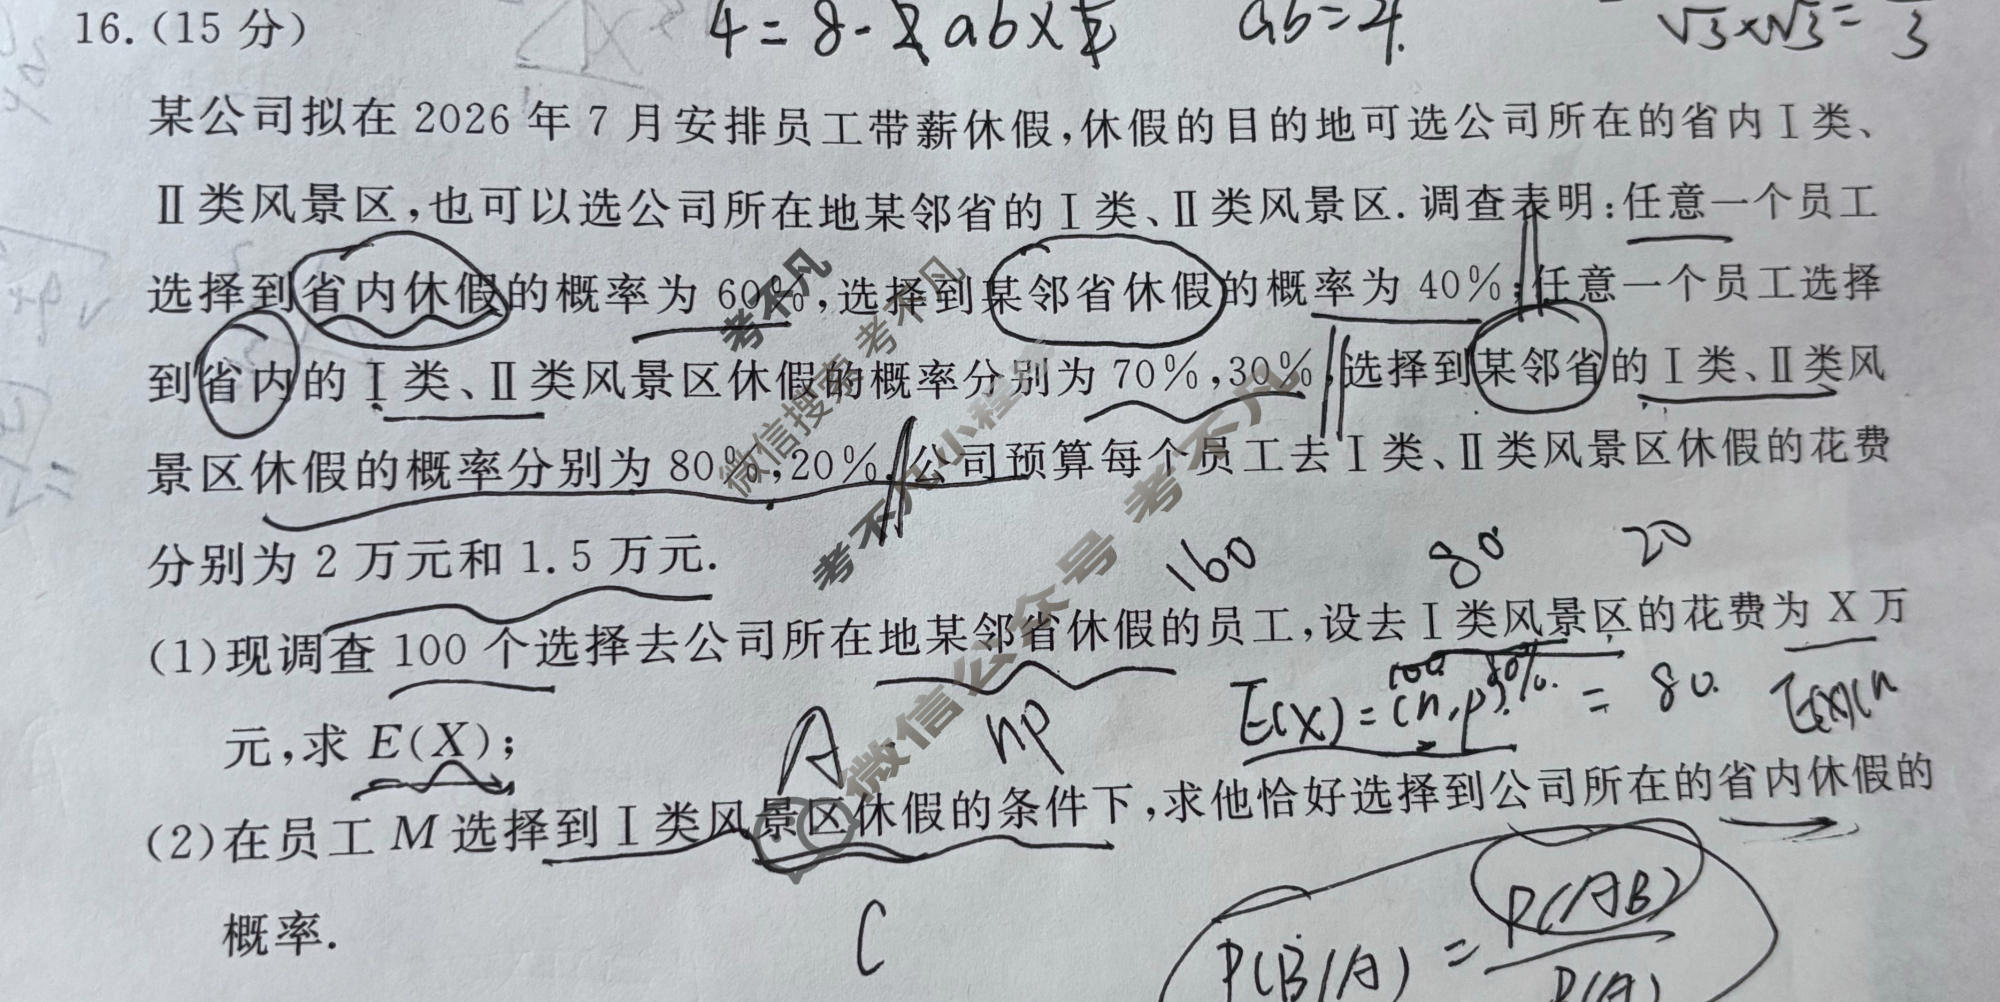 16.(15 分)
4=8-2ab×
ab=4.
√3×√3=
3
某公司拟在 2026 年 7 月安排员工带薪休假,休假的目的地可选公司所在的省内Ⅰ类、
Ⅱ类风景区,也可以选公司所在地某邻省的Ⅰ类、Ⅱ类风景区.调查表明:任意一个员工
选择到省内休假的概率为 60%,选择到某邻省休假的概率为 40%;任意一个员工选择
到省内的Ⅰ类、Ⅱ类风景区休假的概率分别为 70%,30%,选择到某邻省的Ⅰ类、Ⅱ类风
景区休假的概率分别为 80%,20%.公司预算每个员工去Ⅰ类、Ⅱ类风景区休假的花费
分别为 2 万元和 1.5 万元.
160 80 20
(1)现调查 100 个选择去公司所在地某邻省休假的员工,设去Ⅰ类风景区的花费为 X 万
元,求 E(X);
100 80%.
A np E(X)=(n,p) = 80. E(X)(n
(2)在员工 M 选择到Ⅰ类风景区休假的条件下,求他恰好选择到公司所在的省内休假的
概率.
C
P(B|A)=P(AB)
P(A)
考不凡
微信搜索 考不凡
考不凡小程序
微信公众号 考不凡